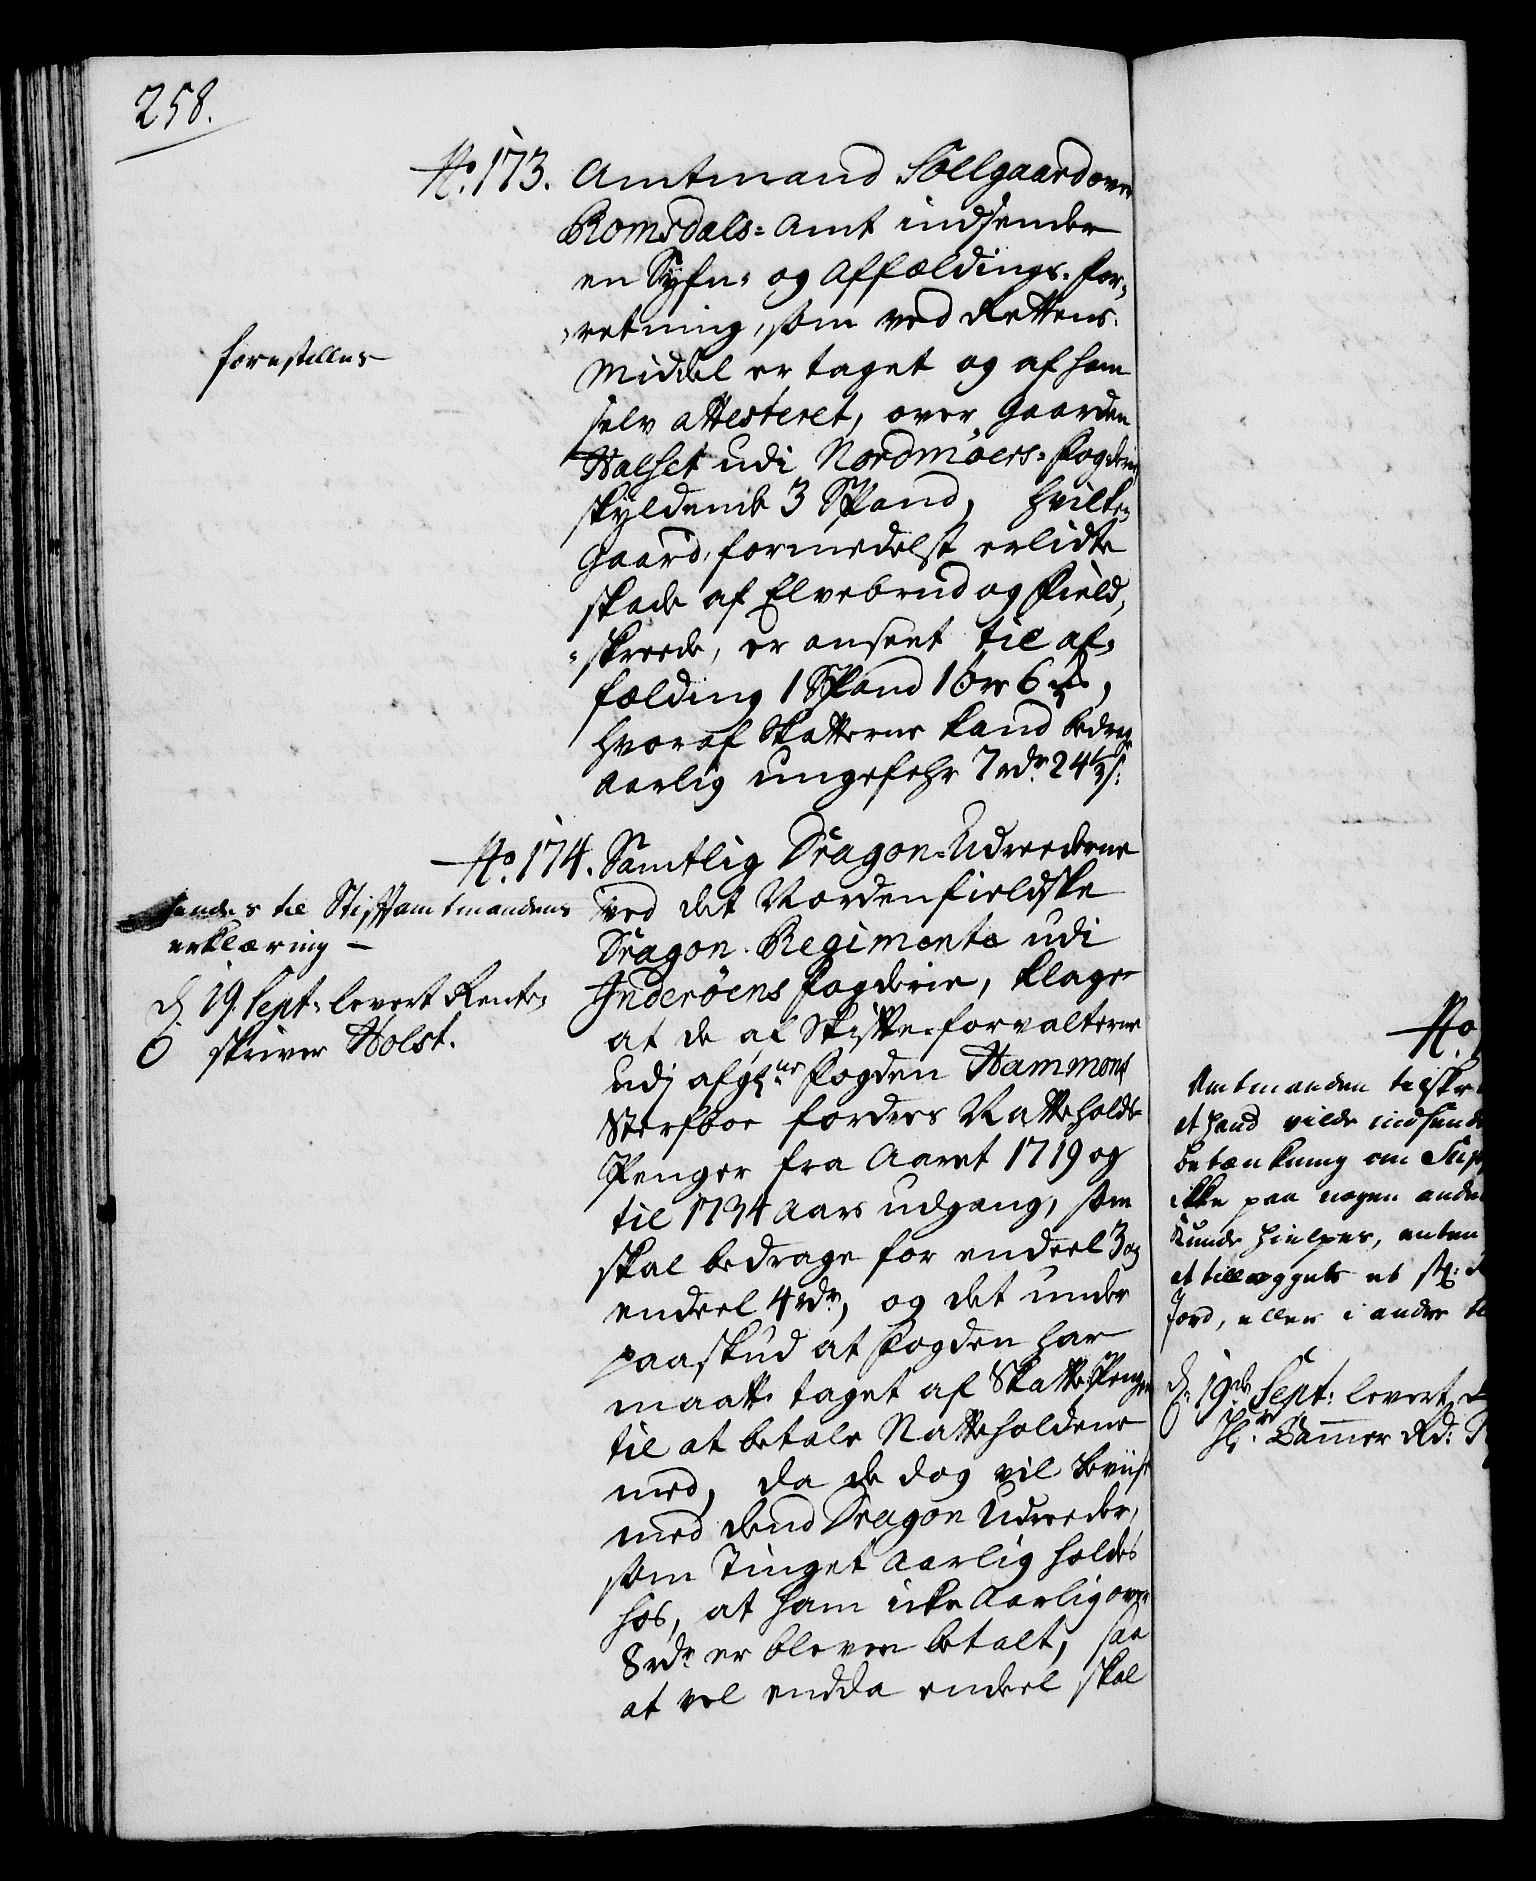 258.
No. 173. Amtmand Sollgaard over
Romsdals-Amt indsender
en Syfn- og Affældings-for-
-retning, som ved Rettens
Middel er taget og af ham
selv attesteret, over Gaarden
Halset udi Nordmöers-Fogderie
skyldende 3 Spand, hvilken
Gaard, formedelst erlidte
skade af Elvebrud og Field,
-skreede, er anseet til af-
fælding 1 Spand 1 öre 6
hvoraf Skatterne kand bedrage
aarlig ungefehr 7 rdr. 24½ s:
forestilles
No. 174. Samtlig Dragon-Udreederne
ved det Nordenfieldske
Dragon-Regimente udi
Inderöens Fogderie, klager
at de af Skifte-forvalterne
udj afgl. Fogden Hammonds
Sterfboe fordres Natteholds
Penger fra Aaret 1719 og
til 1734 Aars udgang, som
skal bedrage for endeel 3 og
endeel 4 rdr, og det under
paaskud at Fogden har
maatte taget af Skatte-Penger
til at betale Natteholdene
med, da de dog vil beviise
med dend Dragon Udreeder,
som Tinget aarlig holdes
hos, at ham icke aarlig over
8 rdr er bleven betalt, saa
at vel endda endeel skal
sendes til Stiftamtmandens
erklæring —
d. 19. Sept: levert Rente-
skriver Holst.
No.
Amtmanden tilskr
at hand vilde indsende
betænkning om Sup
ikke paa nogen anden
kunde hielpes, enten
at tillægges et st:
Jord, eller i andre
d. 19de Sept: levert
Hr. Bammer Rd: